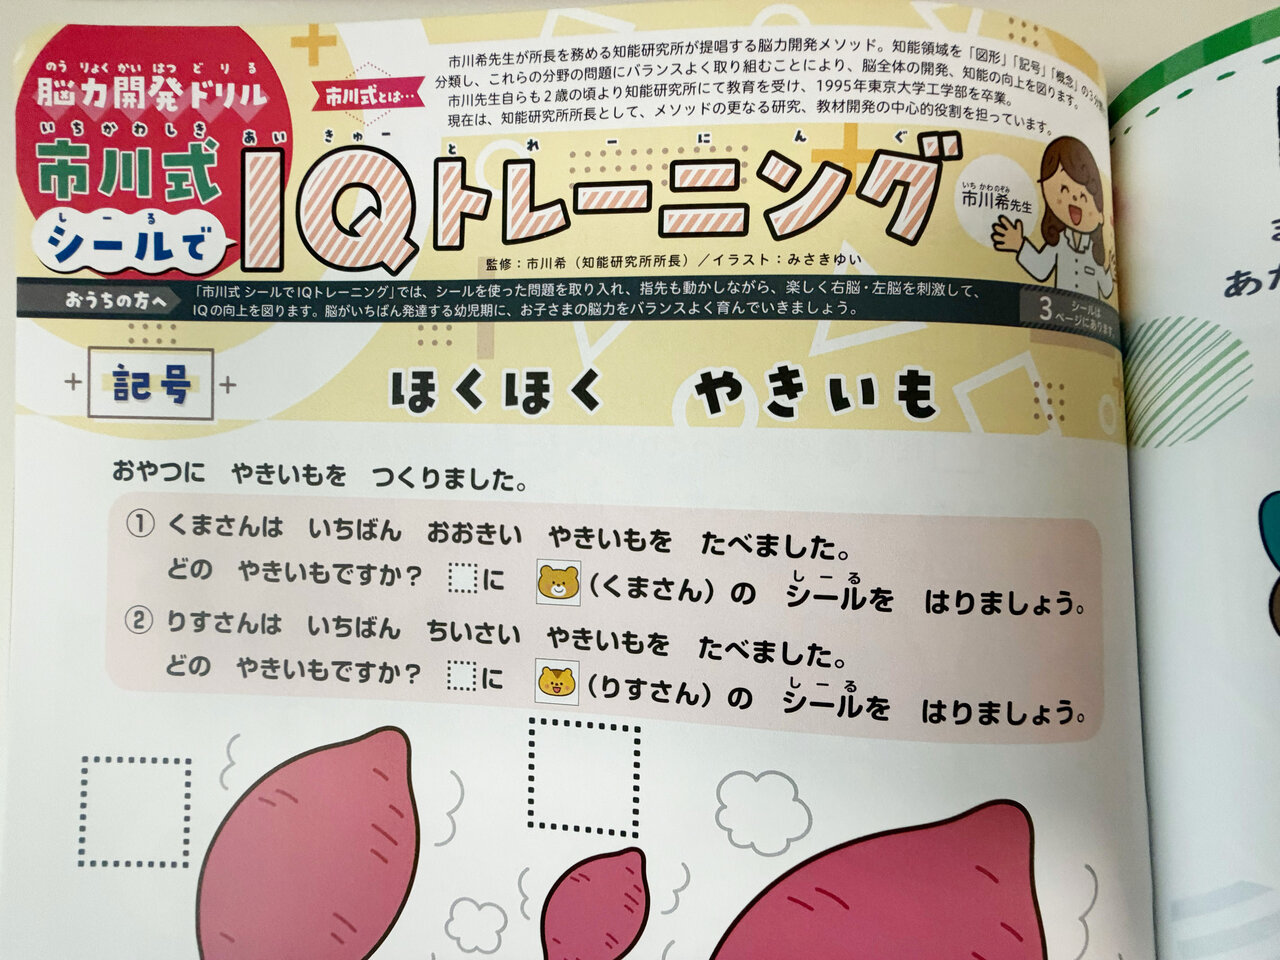 のうりょくかいはつどりる
脳力開発ドリル
いちかわしき
市川式
しーる
シールで
あいきゅーとれーにんぐ
IQトレーニング
市川式とは…
市川希先生が所長を務める知能研究所が提唱する脳力開発メソッド。知能領域を「図形」「記号」「概念」の3分野に
分類し、これらの分野の問題にバランスよく取り組むことにより、脳全体の開発、知能の向上を図ります。
市川先生自らも2歳の頃より知能研究所にて教育を受け、1995年東京大学工学部を卒業。
現在は、知能研究所所長として、メソッドの更なる研究、教材開発の中心的役割を担っています。
いちかわのぞみ
市川希先生
監修:市川希(知能研究所所長)/イラスト:みさきゆい
おうちの方へ
「市川式 シールでIQトレーニング」では、シールを使った問題を取り入れ、指先も動かしながら、楽しく右脳・左脳を刺激して、
IQの向上を図ります。脳がいちばん発達する幼児期に、お子さまの脳力をバランスよく育んでいきましょう。
シールは
3ページにあります。
記号
ほくほく やきいも
おやつに やきいもを つくりました。
① くまさんは いちばん おおきい やきいもを たべました。
しーる
どの やきいもですか? に (くまさん)の シールを はりましょう。
② りすさんは いちばん ちいさい やきいもを たべました。
しーる
どの やきいもですか? に (りすさん)の シールを はりましょう。